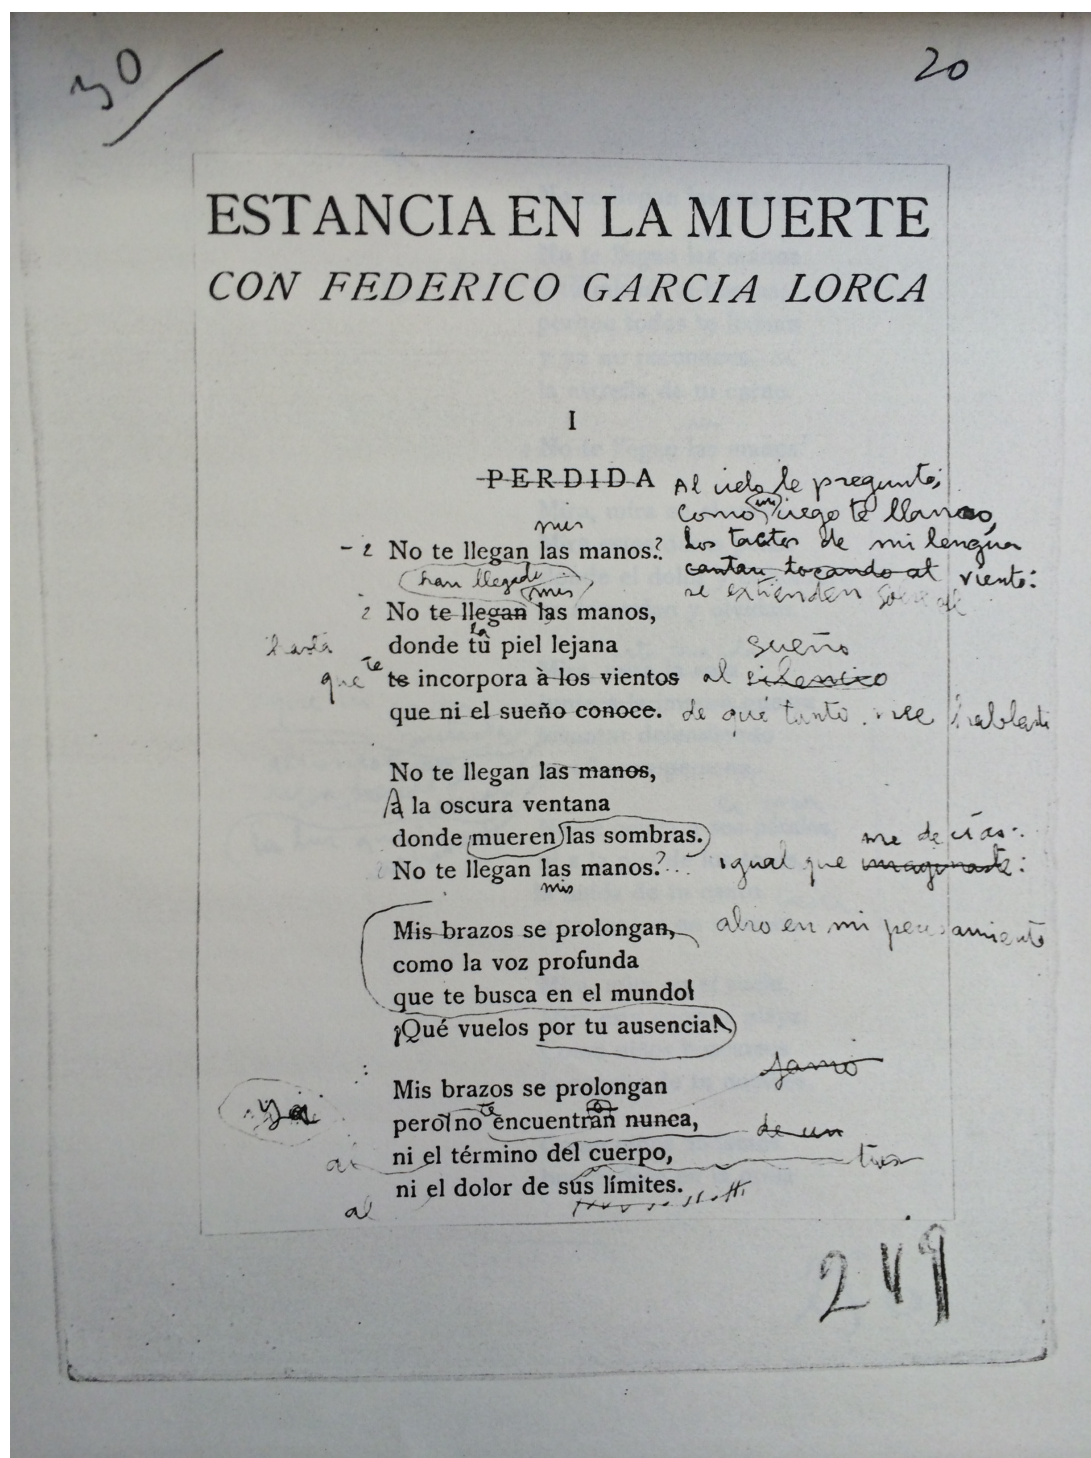 30
20
ESTANCIA EN LA MUERTE
CON FEDERICO GARCIA LORCA
I
PERDIDA Al cielo le pregunté;
como un ciego te llamo,
mis
- ¿ No te llegan las manos? Los tactos de mi lengua
cantan tocando al viento:
han llegado mis se extienden sobre el
¿ No te llegan las manos,
la
hasta donde tu piel lejana sueño
que te te incorpora a los vientos al silencio
que ni el sueño conoce. de que tanto me hablaste
No te llegan las manos,
A la oscura ventana
donde mueren las sombras. me decías:
No te llegan las manos? igual que imaginaste:
mis
Mis brazos se prolongan, abro en mi pensamiento
como la voz profunda
que te busca en el mundo!
¡Qué vuelos por tu ausencia!
Mis brazos se prolongan
ya pero no te encuentran nunca, de un
ni el término del cuerpo, tus
ni el dolor de sus límites.
al
249